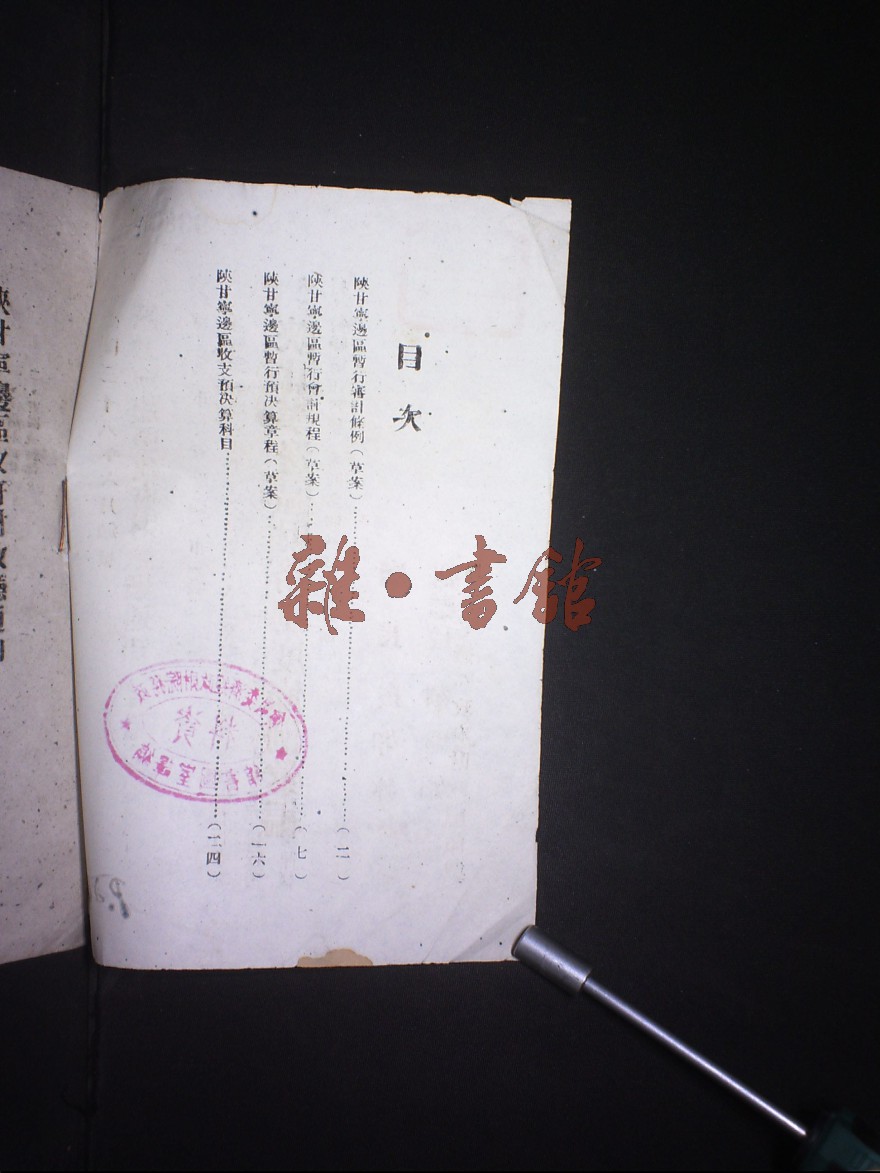 目次
陝甘寧邊區暫行審計條例（草案）……（二）
陝甘寧邊區暫行會計規程（草案）……（七）
陝甘寧邊區暫行預決算章程（草案）……（一六）
陝甘寧邊區收支預決算科目……（二四）
雜·書館
資料